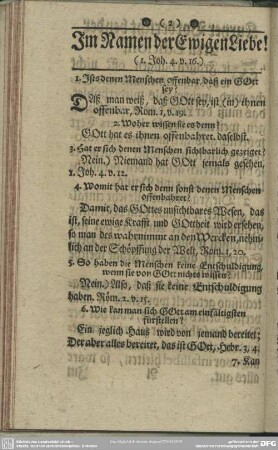 ( 2 )
Im Namen der Ewigen Liebe!
(1. Joh. 4. v. 16.)
1. Ists denen Menschen offenbar, daß ein GOtt
sey?
Daß man weiß, daß GOtt sey, ist (in) ihnen
offenbar, Rom. 1, v. 19.
2. Woher wissen sie es denn?
GOtt hat es ihnen offenbahret. daselbst.
3. Hat er sich denen Menschen sichtbarlich gezeiget?
Nein.) Niemand hat GOtt jemals gesehen,
1. Joh. 4. v. 12.
4. Womit hat er sich denn sonst denen Menschen
offenbahret?
Damit, das GOttes unsichtbares Wesen, das
ist, seine ewige Krafft und GOttheit wird ersehen,
so man des wahrnimmt an den Wercken, nehm-
lich an der Schöpffung der Welt, Rom. 1, 20.
5. So haben die Menschen keine Entschuldigung,
wenn sie von GOtt nichts wissen?
Nein.) Also, daß sie keine Entschuldigung
haben. Röm. 2. v. 15.
6. Wie kan man sich GOtt am einfältigsten
fürstellen?
Ein jeglich Haus wird von jemand bereitet;
Der aber alles bereitet, das ist GOtt, Hebr. 3, 4.
7. Kan